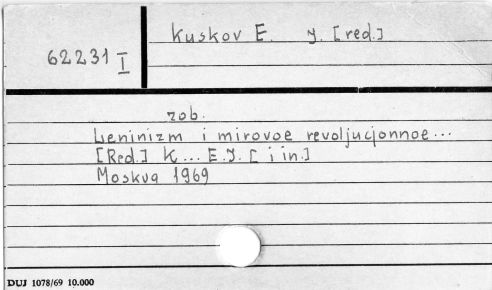 Kuskov E. J. [red.]
62231 I
zob.
Leninizm i mirovoe revoljucjonnoe...
[Red.] K... E.J. [i in.]
Moskva 1969
DUJ 1078/69 10.000